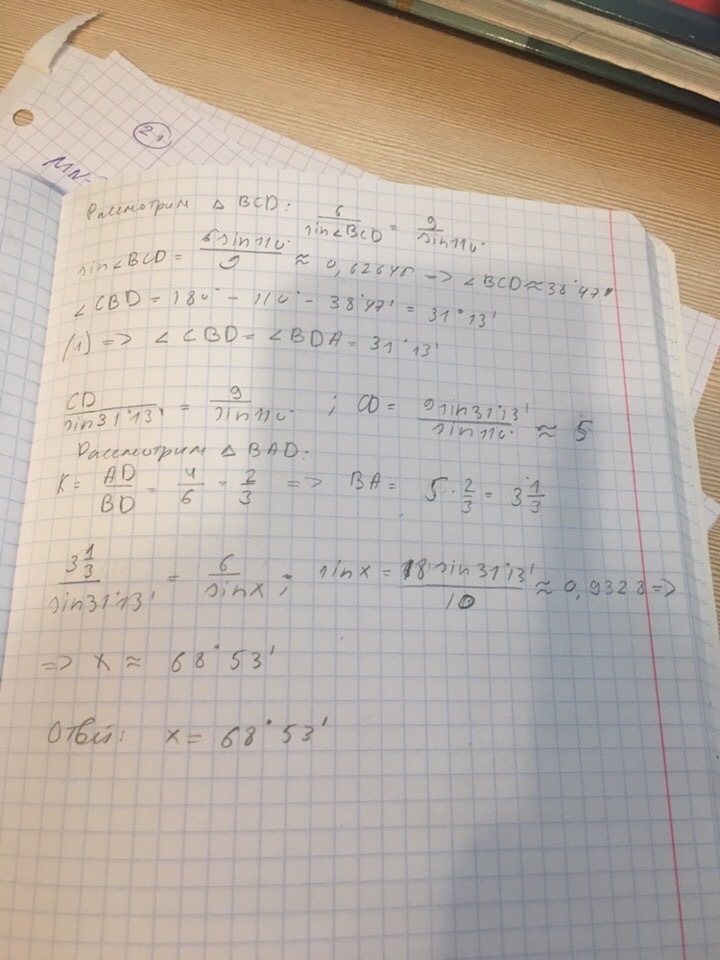 21
MN=
Рассмотрим △ BCD: 6/sin∠BCD = 9/sin110°
sin∠BCD = 6sin110°/9 ≈ 0,62645 => ∠BCD≈38°47'
∠CBD = 180° - 110° - 38°47' = 31°13'
(1) => ∠CBD = ∠BDA = 31°13'
CD/sin31°13' = 9/sin110° ; CD = 9sin31°13'/sin110° ≈ 5
Рассмотрим △ BAD:
K = AD/BD = 4/6 = 2/3 => BA = 5 · 2/3 = 3 1/3
3 1/3/sin31°13' = 6/sinx ; sinx = 18sin31°13'/10 ≈ 0,9328 =>
=> x ≈ 68°53'
Ответ: x = 68°53'